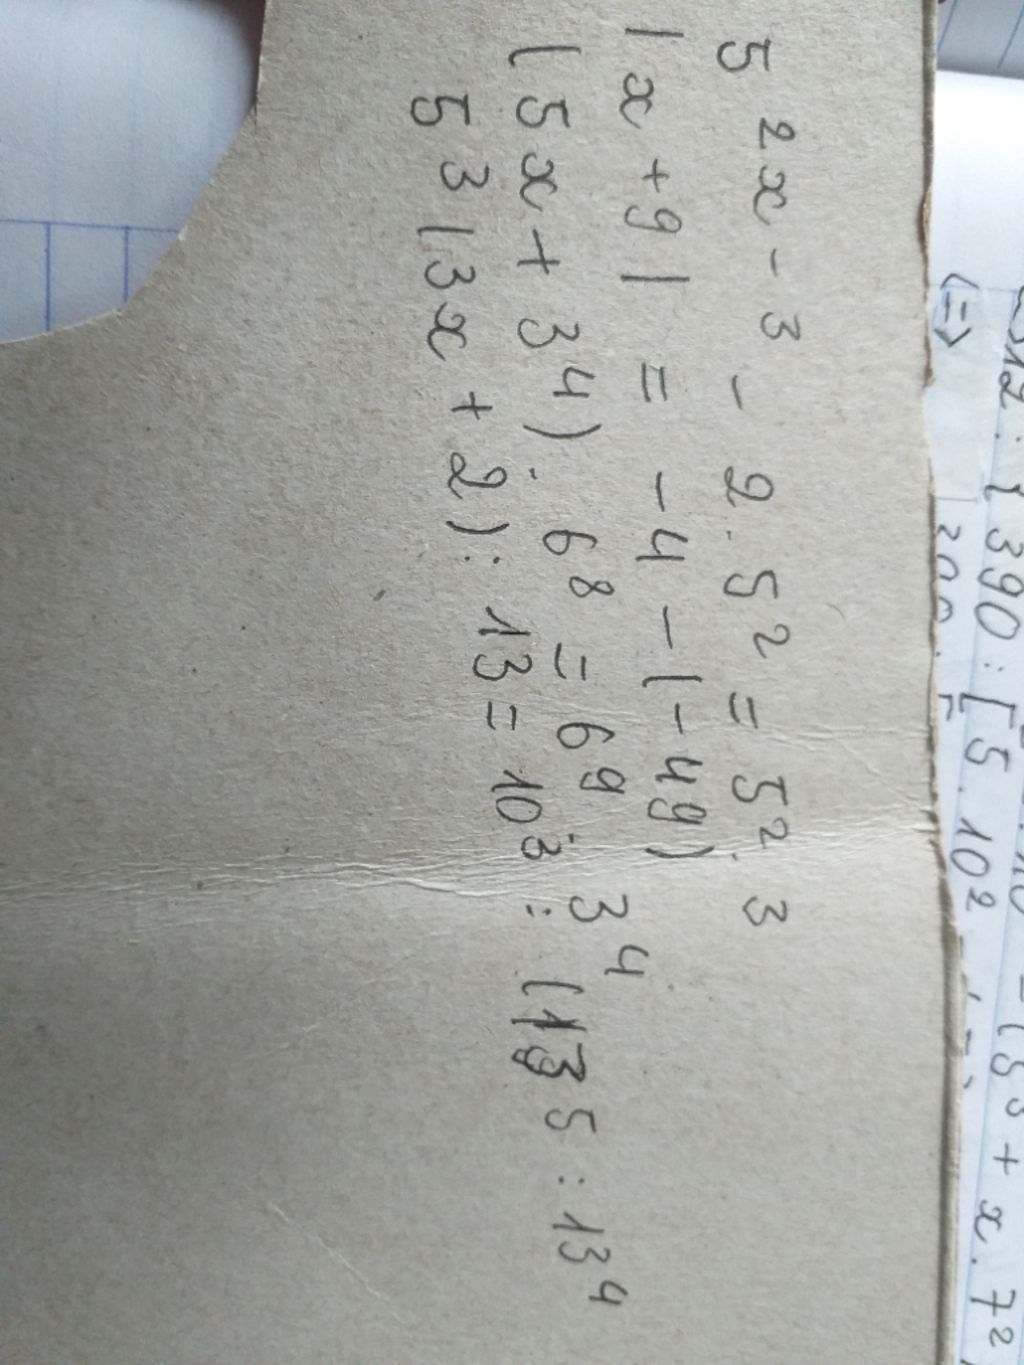 5²ˣ⁻³ - 2.5² = 5².3
|x + 9| = -4 - (-49)
(5x + 3⁴). 6⁸ = 6⁹. 3⁴
53(3x + 2): 13 = 10³ : (13⁵ : 13⁴
312 : { 390 : [5.10² - (5³ + x.7²
<=>